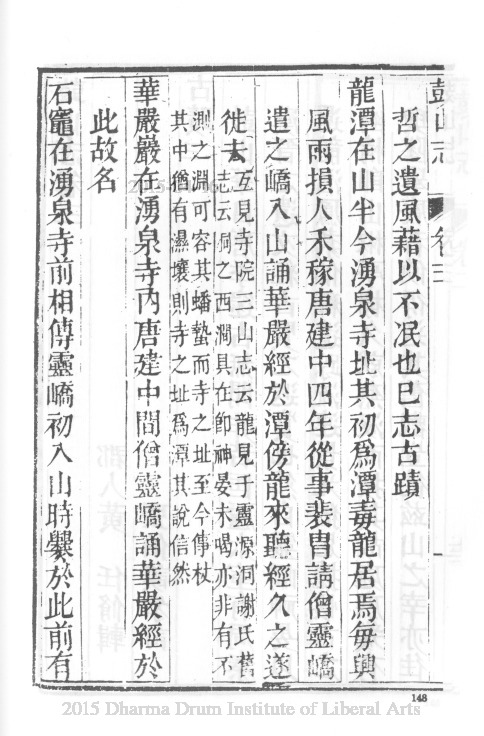 鼓山志 卷三
哲之遺風藉以不泯也已志古蹟
龍潭在山半今湧泉寺址其初爲潭毒龍居焉每興
風雨損人禾稼唐建中四年從事裴胄請僧靈嶠
遣之嶠入山誦華嚴經於潭傍龍來聽經久之遂
徙去互見寺院三山志云龍見于靈源洞謝氏舊
志云洞之西澗具在即神晏未喝亦非有不
測之淵可容其蟠蟄而寺之址至今傳杖
其中猶有濕壤則寺之址爲潭其說信然
華嚴巖在湧泉寺內唐建中間僧靈嶠誦華嚴經於
此故名
石竈在湧泉寺前相傳靈嶠初入山時爨於此前有
148
2015 Dharma Drum Institute of Liberal Arts